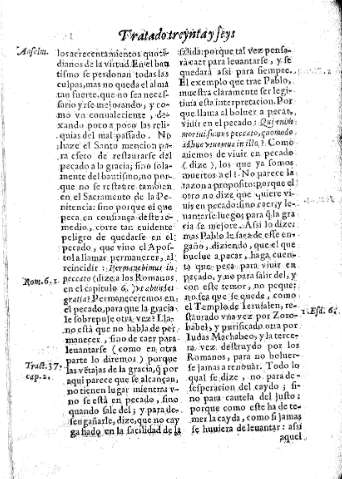 Tratado treynta y seys
Anselm.
los acrecentamientos quoti-
dianos de la virtud. En el bau
tismo se perdonan todas las
culpas, mas no queda el alma
tan fuerte, que no sea neces-
sario yrse mejorando, y co-
mo vn conualeciente, de-
xando poco a poco las reli-
quias del mal passado. No
haze el Santo mencion pa-
ra esto de restaurarse del
pecado a la gracia; sino sola-
mente del bautismo, no por-
que no se restaure tambien
en el Sacramento de la Pe-
nitencia: sino porque el que
peca en confiança deste o-
medio, corre tan euidente
peligro de quedarse en el
pecado, que vino el Apos-
tol a llamar permanecer, al
reincidir: Permanebimus in
peccato (dize a los Romanos,
en el capitulo 6.)
gratia? Permaneceremos en
el pecado, para que la gracia
se sobrepuje otra vez? Lla-
no està que no habla de per-
manecer, sino de caer para
leuantarse (como en otra
parte lo diremos) porque
las vẽtajas de la gracia, q̃ por
aqui parece que se alcançan,
no tienen lugar mientra v-
no se està en pecado, sino
quando sale del; y para de-
sengañarle, dize, que no cay
ga ñado en la facilidad de la
Rom. 6. 1.
Tract. 37.
cap. 2.
salida: porque tal vez pensa-
rà caer para leuantarse, y se
quedarà assi para siempre.
El exemplo que trae Pablo,
muestra claramente ser legi-
tima esta interpretacion. Por
que llama el boluer a pecar,
viuir en el pecado: Qui enim
mortui sumus peccato, quomodo
adhuc viuemus in illo? Como
auemos de viuir en pecado
(dize), los que ya somos
muertos a el? No parece la
razon a proposito: porque el
otro no dize que quiere vi-
uir en pecado: sino caer, y le-
uantarse luego; para q̃ la gra-
cia se mejore. Assi lo dize:
mas Pablo le saca de esse en-
gaño, diziendo, que el que
buelue a pecar, haga cuen-
ta que peca para viuir en
pecado, y no para salir del, y
con este temor, no peque:
no sea que se quede, como
el Templo de Ierusalen, res-
taurado vna vez por Zoro-
babel, y purificado otra por
Iudas Machabeo; y la terce-
ra vez destruydo por los
Romanos, para no boluer-
se jamas a renouar. Todo lo
qual se dize, no para de-
sesperacion del caydo; si-
no para cautela del justo:
porque como este ha de te-
mer la cayda, como si jamas
se huuiera de leuantar: assi
aquel
1. Esd. 6.